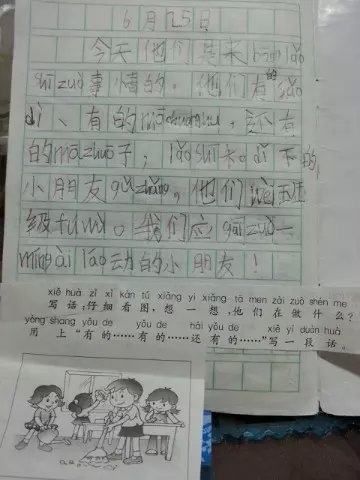 6月25日
今天他们是来bāng lǎo
shī zuò事情的。他们有的sǎo
dì、有的 chuāng hu，还有
的mā zhuō子，lǎo shī dì 下的
小朋友gǔ zhǎng。他们wèi班
级fú wù。我们应gāi zuò一
míng ài láo动的小朋友！
xiě huà zǐ xì kàn tú xiǎng yi xiǎng tā men zài zuò shén me
写话：仔细看图，想一想，他们在做什么？
yòng shang yǒu de yǒu de hái yǒu de xiě yí duàn huà
用上“有的……有的……还有的……”写一段话。